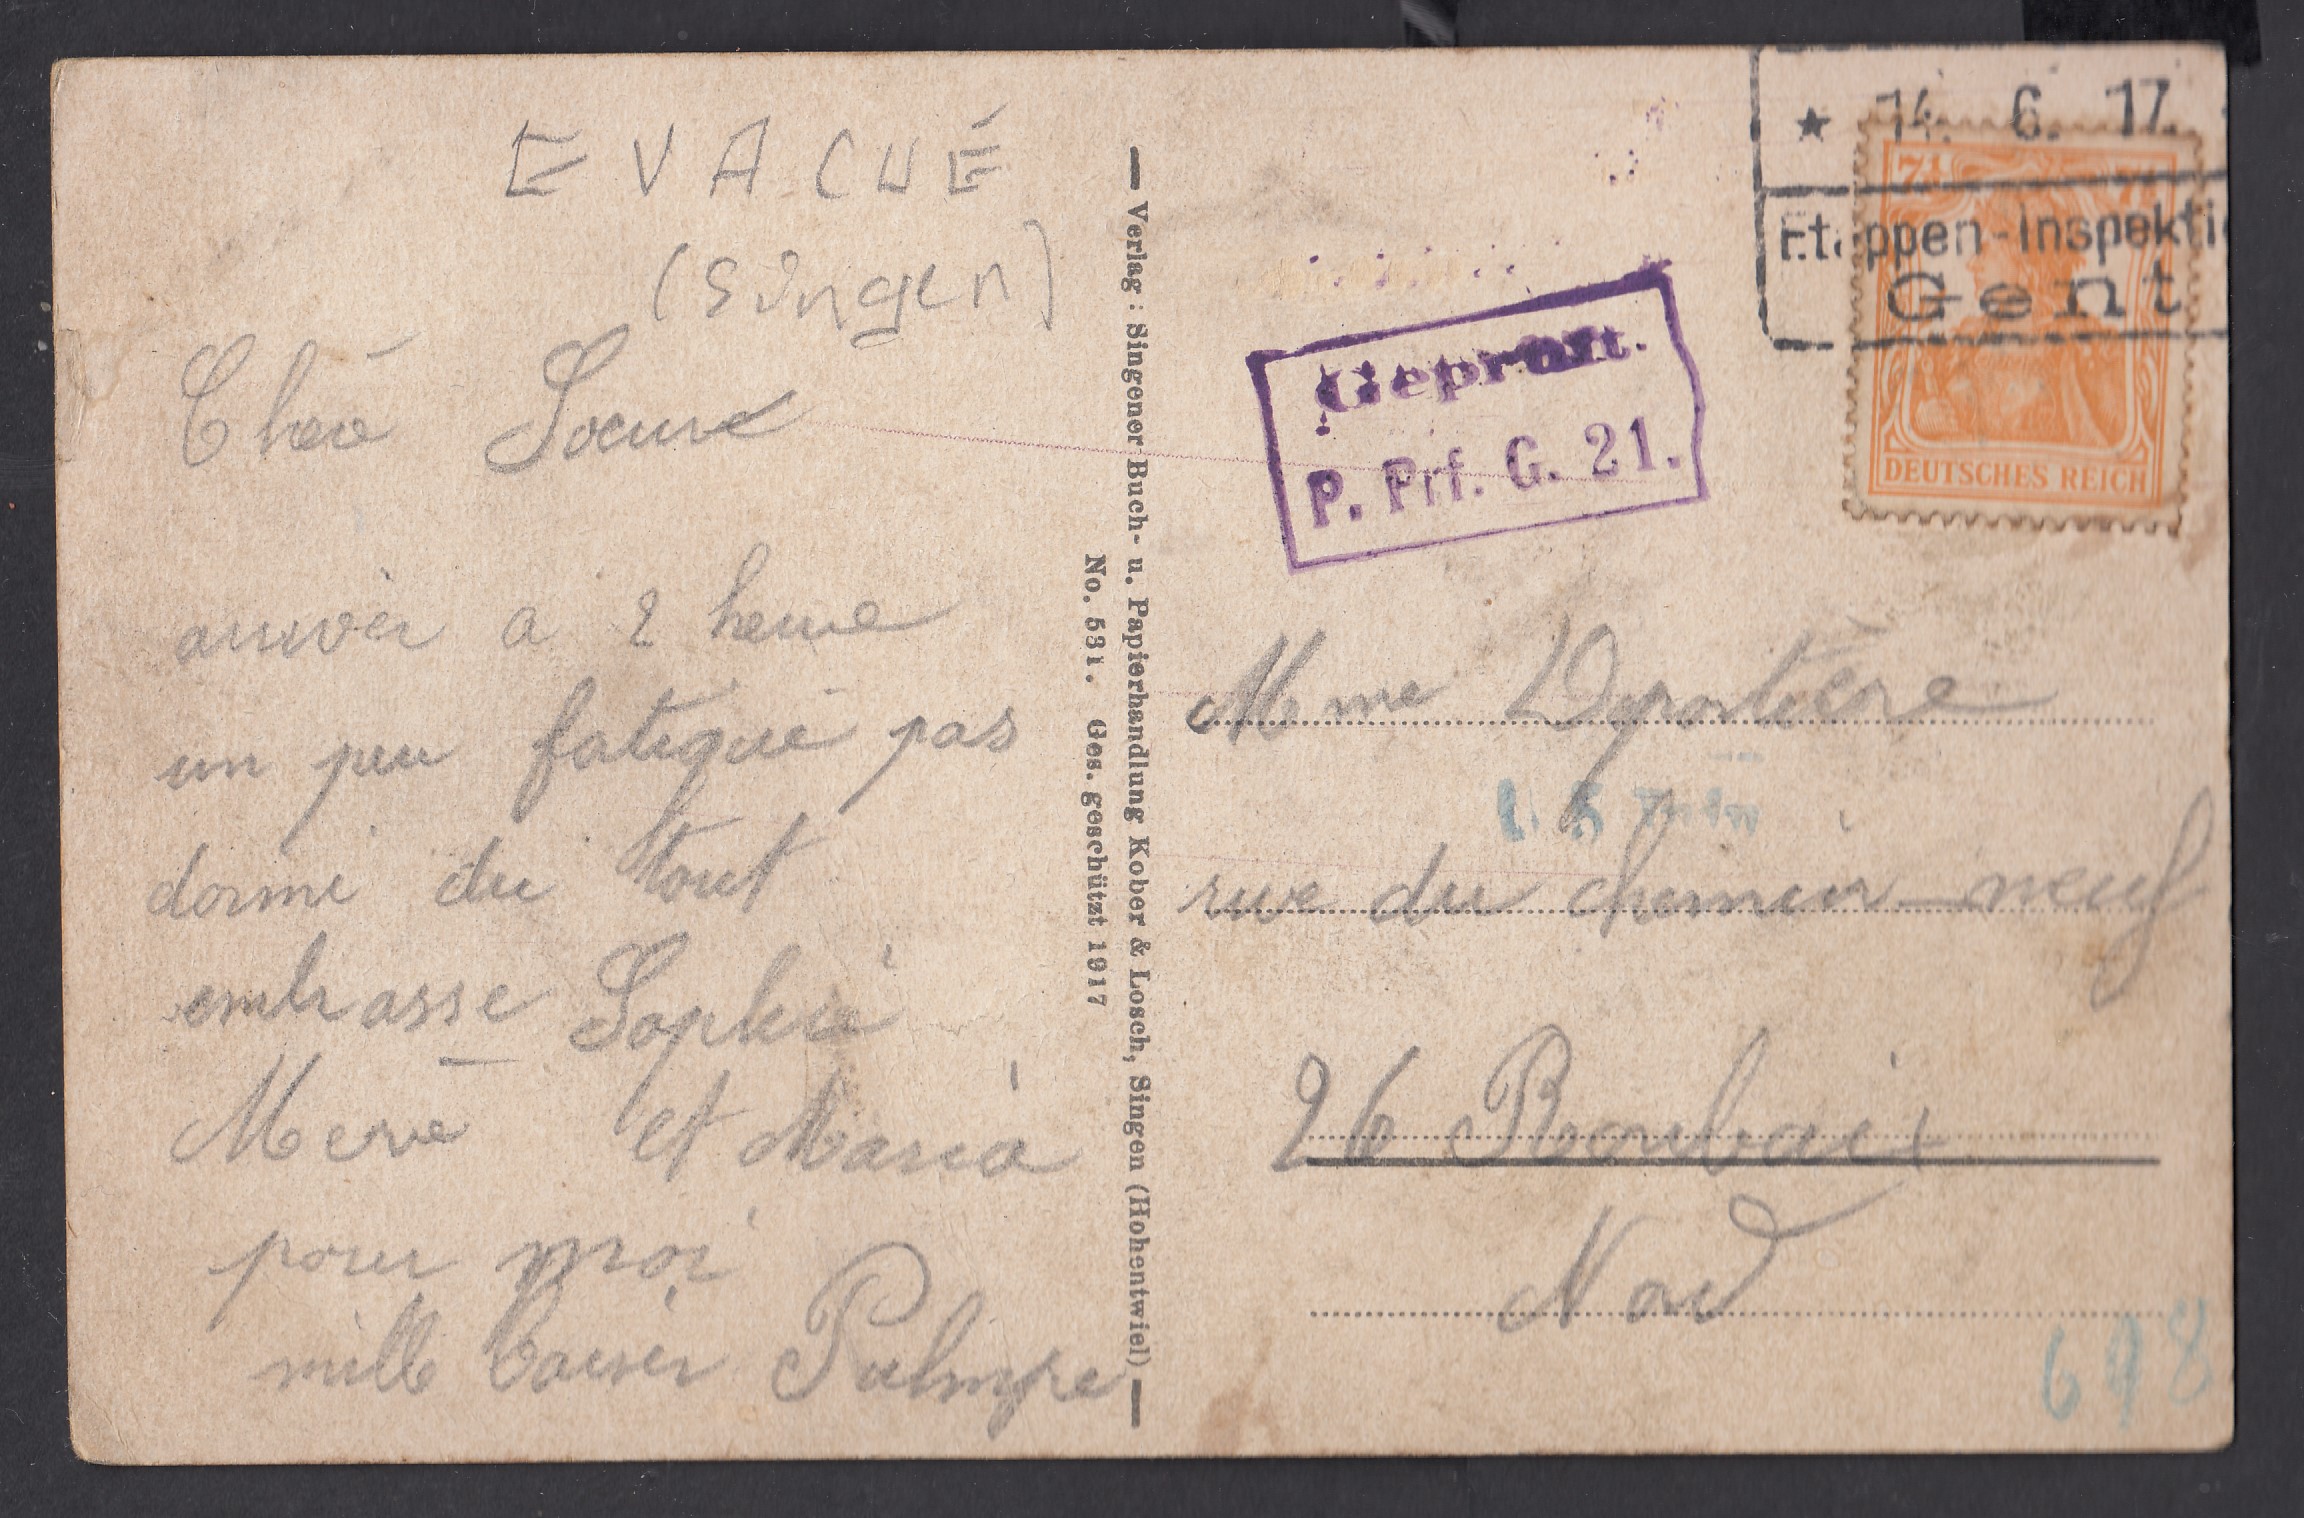 EVACUÉ
(Singen)
Chére Sœure
arriver a 2 heure
un peu fatiguè pas
dormi du tout
embrasse Sophie
Mere et Maria
pour moi
mille baiser Palmyre
— Verlag: Singener Buch- u. Papierhandlung Kober & Losch, Singen (Hohentwiel) —
No. 531. Ges. geschützt 1917
★ 14. 6. 17.
Etappen-Inspekti
Gent
7½ 7½
DEUTSCHES REICH
Geprüft.
P. Prf. G. 21.
Mme Deportière
rue du chemin neuf
26 Roubaix
Nord
698